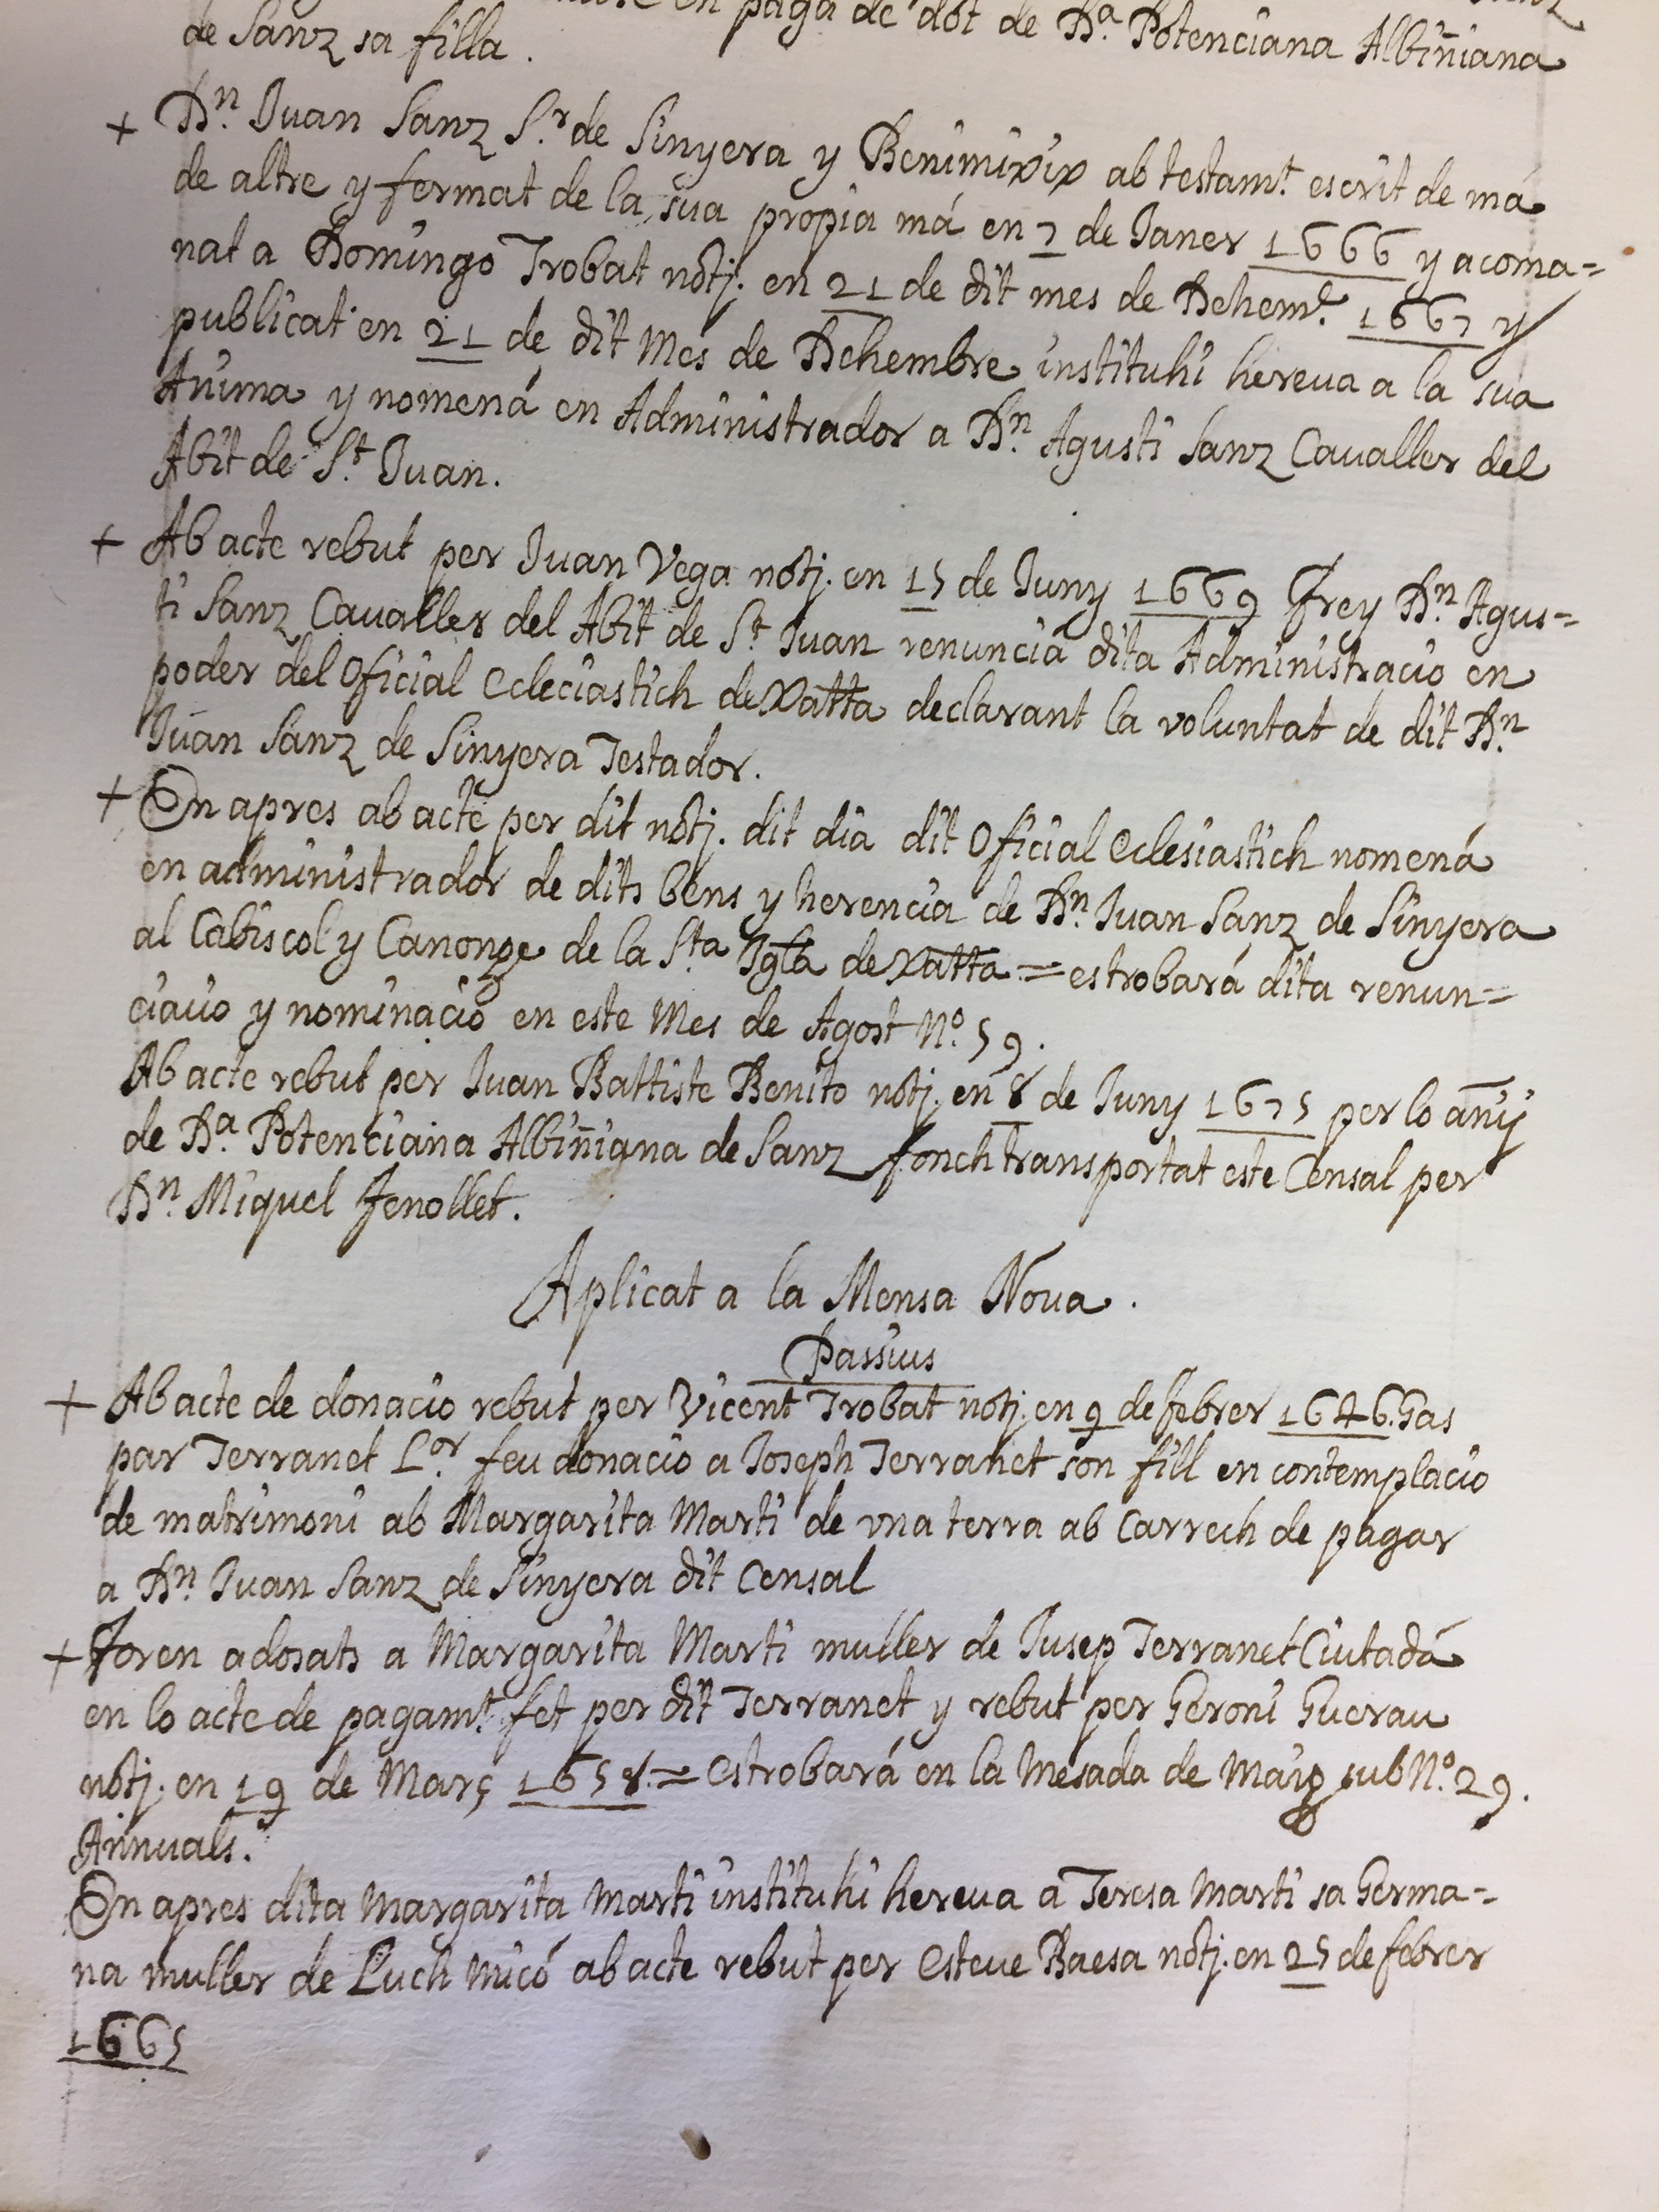 en paga de dot de Dª. Potenciana Albiñiana
de Sanz sa filla.
+ Dⁿ. Juan Sanz S.ʳ de Sinyera y Benimixix ab testam.ᵗ escrit de má
de altre y fermat de la sua propia má en 7 de Janer 1666 y acoma=
nat a Domingo Trobat notj. en 21 de dit mes de Dehem.ᵉ 1667 y
publicat en 21 de dit Mes de Dehembre instituhi hereua a la sua
Anima y nomená en Administrador a Dⁿ. Agusti Sanz Cavaller del
Abit de S.ᵗ Juan.
+ Ab acte rebut per Juan Vega notj. en 15 de Juny 1669 Frey Dⁿ. Agus=
ti Sanz Cavaller del Abit de S.ᵗ Juan renunciá dita Administracio en
poder del Oficial Ecleciastich de Xatta declarant la voluntat de dit Dⁿ.
Juan Sanz de Sinyera Testador.
+ En apres ab acte per dit notj. dit dia dit Oficial Eclesiastich nomená
en administrador de dits bens y herencia de Dⁿ. Juan Sanz de Sinyera
al Cabiscol y Canonge de la S.ᵗᵃ Igla de Xatta = estrobará dita renun=
ciacio y nominacio en este Mes de Agost Nº. 59.
Ab acte rebut per Juan Battiste Benito notj. en 8 de Juny 1675 per lo anÿ
de Dª. Potenciana Albiñiana de Sanz fonch transportat este Censal per
Dⁿ. Miquel Fenollet.
Aplicat a la Mensa Nova.
Passius
+ Ab acte de donacio rebut per Vicent Trobat notj. en 9 de febrer 1646. Gas
par Terranet L.ᵒʳ feu donacio a Joseph Terranet son fill en contemplacio
de matrimoni ab Margarita Marti de vna terra ab Carrech de pagar
a Dⁿ. Juan Sanz de Sinyera dit Censal
+ Foren adosats a Margarita Marti muller de Jusep Terranet Ciutadá
en lo acte de pagam.ᵗ fet per dit Terranet y rebut per Geroni Guerau
notj. en 19 de Març 1658. = Estrobará en la Mesada de Maig sub Nº. 29.
Annuals.
En apres dita Margarita Marti instituhi hereua a Teresa Marti sa Germa=
na muller de Luch Micó ab acte rebut per Esteve Baesa notj. en 25 de febrer
1665